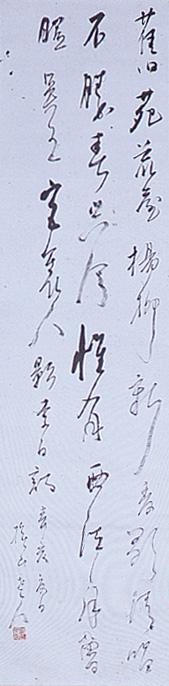 舊苑荒臺楊柳新菱歌清唱
不勝春只今惟有西江月曾
照吳王宮裏人 李白